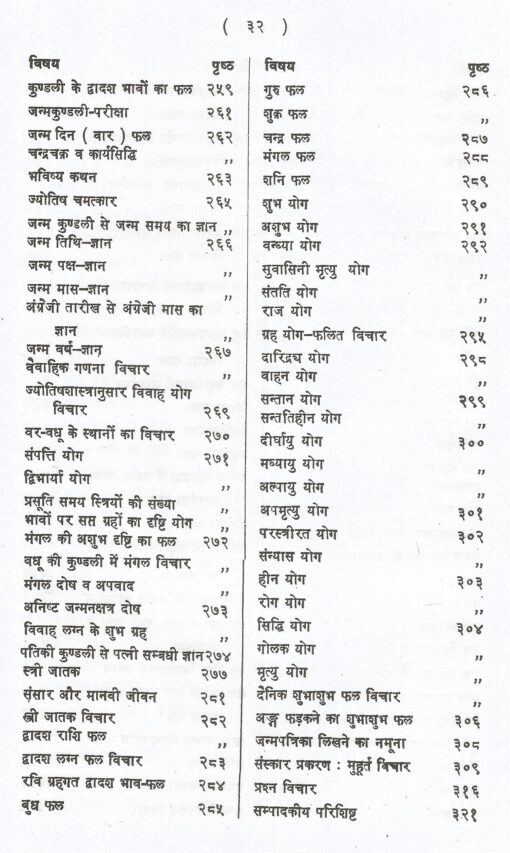 ( ३२ )
विषय पृष्ठ
कुण्डली के द्वादश भावों का फल २५९
जन्मकुण्डली-परीक्षा २६१
जन्म दिन ( वार ) फल २६२
चन्द्रचक्र व कार्यसिद्धि ,,
भविष्य कथन २६३
ज्योतिष चमत्कार २६५
जन्म कुण्डली से जन्म समय का ज्ञान ,,
जन्म तिथि-ज्ञान २६६
जन्म पक्ष-ज्ञान ,,
जन्म मास-ज्ञान ,,
अंग्रेजी तारीख से अंग्रेजी मास का
ज्ञान ,,
जन्म वर्ष-ज्ञान २६७
वैवाहिक गणना विचार ,,
ज्योतिषशास्त्रानुसार विवाह योग
विचार २६९
वर-वधू के स्थानों का विचार २७०
संपत्ति योग २७१
द्विभार्या योग ,,
प्रसूति समय स्त्रियों की संख्या ,,
भावों पर सप्त ग्रहों का दृष्टि योग ,,
मंगल की अशुभ दृष्टि का फल २७२
वधू की कुण्डली में मंगल विचार ,,
मंगल दोष व अपवाद ,,
अनिष्ट जन्मनक्षत्र दोष २७३
विवाह लग्न के शुभ ग्रह ,,
पतिकी कुण्डली से पत्नी सम्बधी ज्ञान २७४
स्त्री जातक २७७
संसार और मानवी जीवन २८१
स्त्री जातक विचार २८२
द्वादश राशि फल ,,
द्वादश लग्न फल विचार २८३
रवि ग्रहगत द्वादश भाव-फल २८४
बुध फल २८५
विषय पृष्ठ
गुरु फल २८६
शुक्र फल ,,
चन्द्र फल २८७
मंगल फल २८८
शनि फल २८९
शुभ योग २९०
अशुभ योग २९१
वन्ध्या योग २९२
सुवासिनी मृत्यु योग ,,
संतति योग ,,
राज योग ,,
ग्रह योग-फलित विचार २९५
दारिद्रय योग २९८
वाहन योग ,,
सन्तान योग २९९
सन्ततिहीन योग ,,
दीर्घायु योग ३००
मध्यायु योग ,,
अल्पायु योग ,,
अपमृत्यु योग ३०१
परस्त्रीरत योग ३०२
संन्यास योग ,,
हीन योग ३०३
रोग योग ,,
सिद्धि योग ३०४
गोलक योग ,,
मृत्यु योग ,,
दैनिक शुभाशुभ फल विचार ,,
अङ्ग फड़कने का शुभाशुभ फल ३०६
जन्मपत्रिका लिखने का नमूना ३०८
संस्कार प्रकरण : मुहूर्त विचार ३०९
प्रश्न विचार ३१६
सम्पादकीय परिशिष्ट ३२१